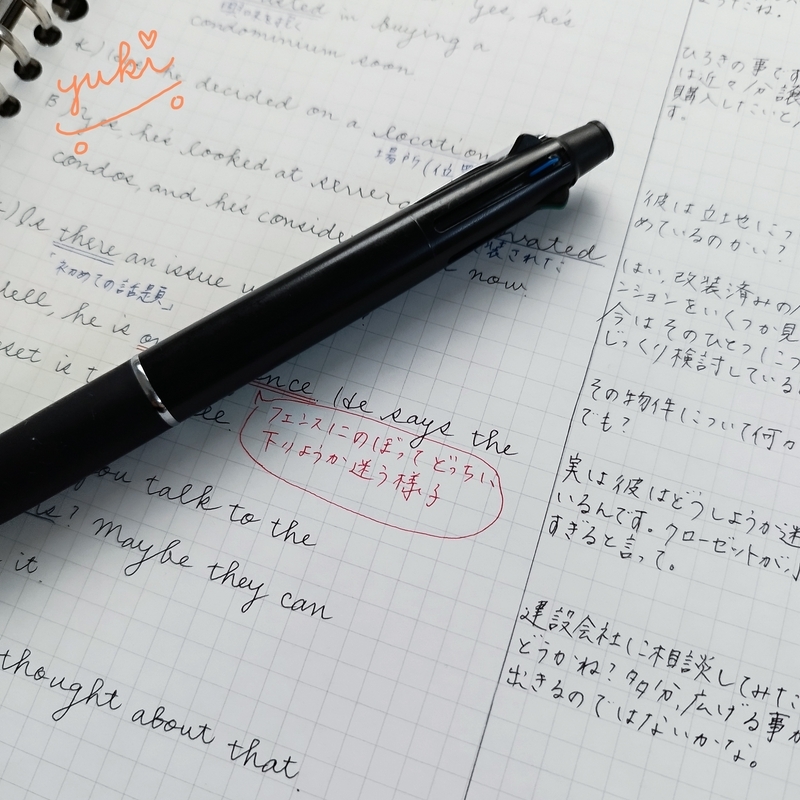 in buying a
condominium soon
yuki
he decided on a location
場所(位
B) Yes, he's looked at
condos, and he's
vated
装された
Is there an issue
now.
「初めての話題」
he is
is
nce. He says the
フェンスにのぼってどっちに
下りようか迷う様子
you talk to the
? Maybe they can
it.
thought about that.
ひろきの事です
は近々分譲
購入したいと
す。
彼は立地につ
めているのかい?
はい、改装済みの
ンションをいくつか見
今はそのひとつにつ
じっくり検討している
その物件について何か
でも?
実は彼はどうしようか迷
いるんです。クローゼットが小
すぎると言って。
建設会社に相談してみた
どうかね?多分、広げる事が
出きるのではないかな。